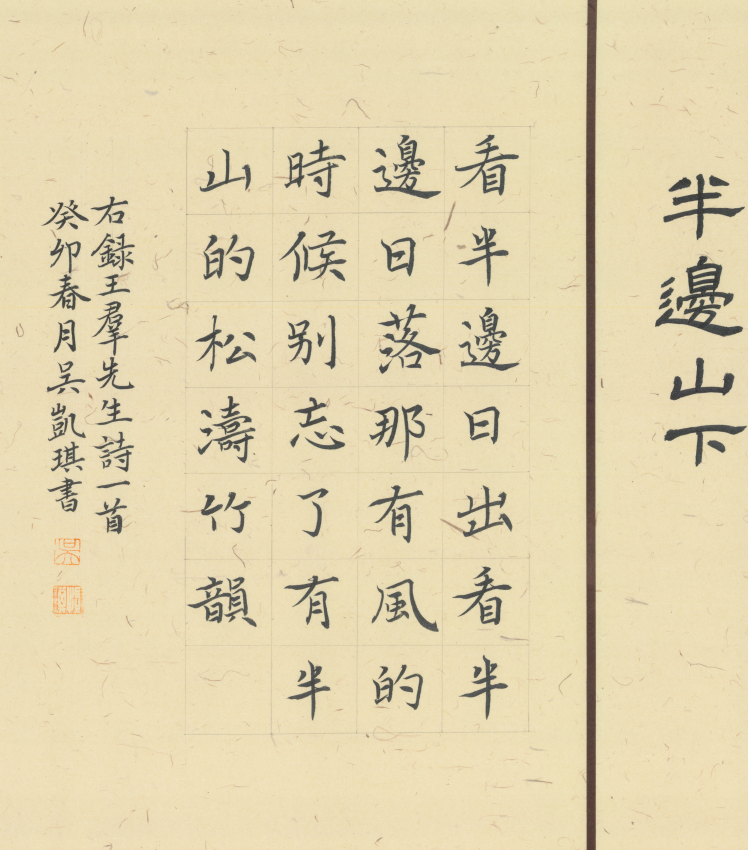 半邊山下
看半邊日出看半
邊日落那有風的
時候别忘了有半
山的松濤竹韻
右録王羣先生詩一首
癸卯春月吴凱琪書